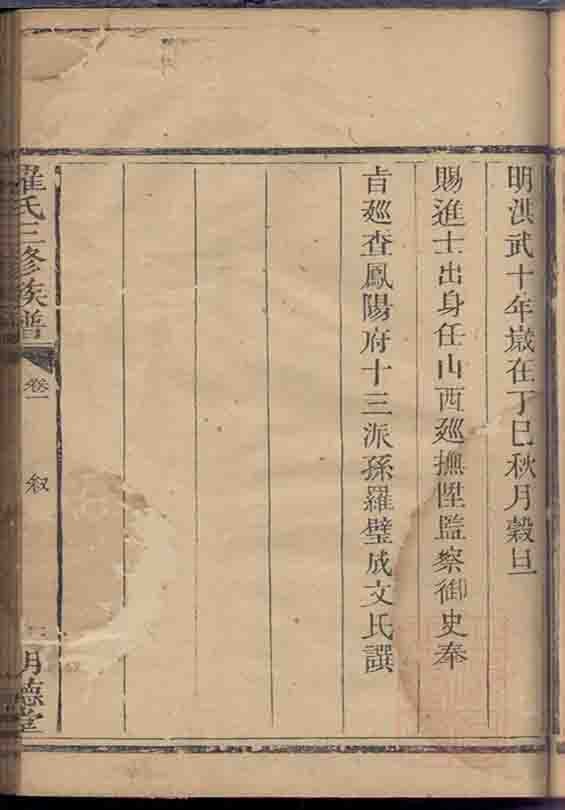 明洪武十年歲在丁巳秋月穀旦
賜進士出身任山西廵撫陞監察御史奉
旨廵查鳳陽府十三派孫羅璧成文氏譔
羅氏三修族譜
卷一
叙
明德堂